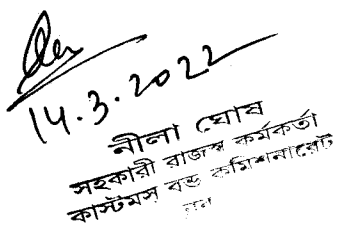 14.3.2022
নীলা ঘোষ
সহকারী রাজস্ব কর্মকর্তা
কাস্টমস বন্ড কমিশনারেট